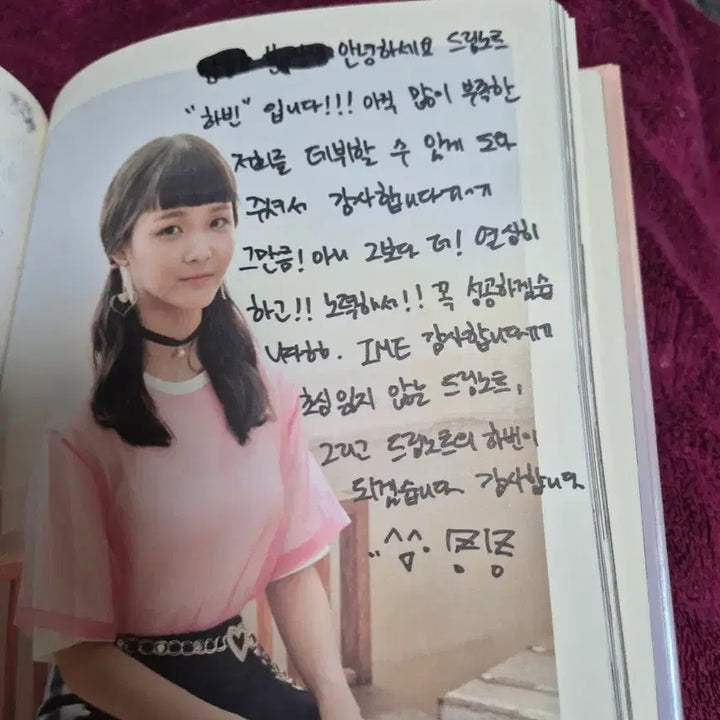 안녕하세요 드림노트
"하빈" 입니다!!! 아직 많이 부족한
저희를 데뷔할 수 있게 도와
주셔서 감사합니다ㅠㅅㅠ
그만큼! 아니 그보다 더! 열심히
하고!! 노력해서!! 꼭 성공하겠습
니다ㅎㅎ. IME 감사합니다ㅠㅠ
초심 잃지 않는 드림노트,
그리고 드림노트의 하빈이
되겠습니다 감사합니다